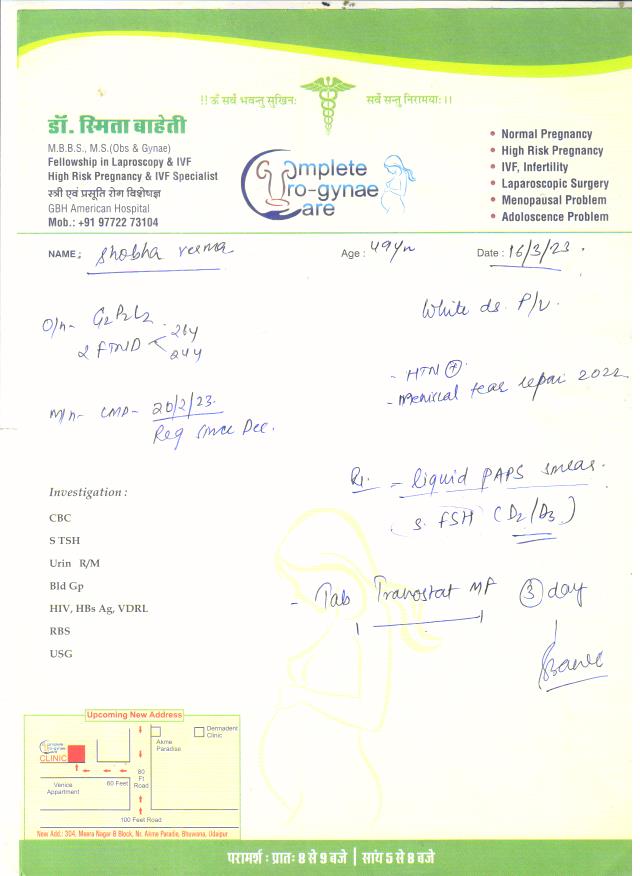 !! ॐ सर्वे भवन्तु सुखिनः सर्वे सन्तु निरामयाः ।।
डॉ. स्मिता बाहेती
M.B.B.S., M.S.(Obs & Gynae)
Fellowship in Laproscopy & IVF
High Risk Pregnancy & IVF Specialist
स्त्री एवं प्रसूति रोग विशेषज्ञ
GBH American Hospital
Mob.: +91 97722 73104
Complete
Uro-gynae
Care
• Normal Pregnancy
• High Risk Pregnancy
• IVF, Infertility
• Laparoscopic Surgery
• Menopausal Problem
• Adoloscence Problem
NAME : Shobha verma Age : 49yr Date : 16/3/23.
White ds. P/V.
O/H- G2P2L2
2 FTND < 26y
24y
- HTN (+)
- Meniscal tear repair 2022
M/H- LMP- 20/2/23.
Reg since Dec.
Investigation :
CBC
S TSH
Urin R/M
Bld Gp
HIV, HBs Ag, VDRL
RBS
USG
- liquid PAPS smear.
S. FSH (D2/D3)
- Tab Tranostat MF (3) day
Upcoming New Address
Complete
Uro-gynae
Care
CLINIC
Akme
Paradise
Dermadent
Clinic
Venice
Appartment
60 Feet
80
Ft
Road
100 Feet Road
New Add.: 304, Meera Nagar B Block, Nr. Akme Paradie, Bhuwana, Udaipur.
परामर्श : प्रातः 8 से 9 बजे | सांय 5 से 8 बजे